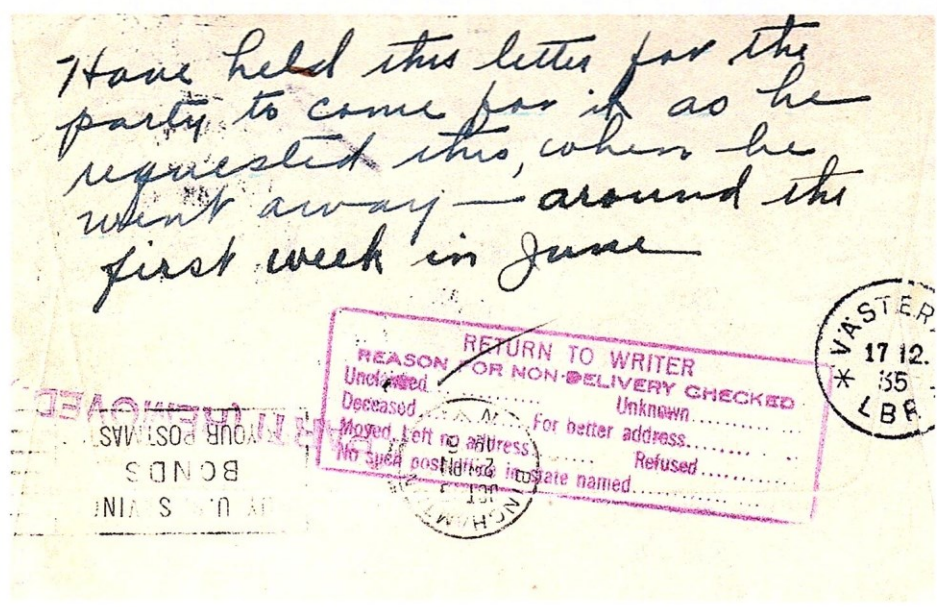 Have held this letter for the
party to come for it as he
requested this, when he
went away — around the
first week in June
RETURN TO WRITER
REASON FOR NON-DELIVERY CHECKED
Unclaimed
Unknown
Deceased
For better address
Moved, Left no address
Refused
No such post office in state named
VÄSTER
17 12.
35
LBR
REMOVED
YOUR POSTMAS
BONDS
UY U. S. SAVIN
OCT
2 PM